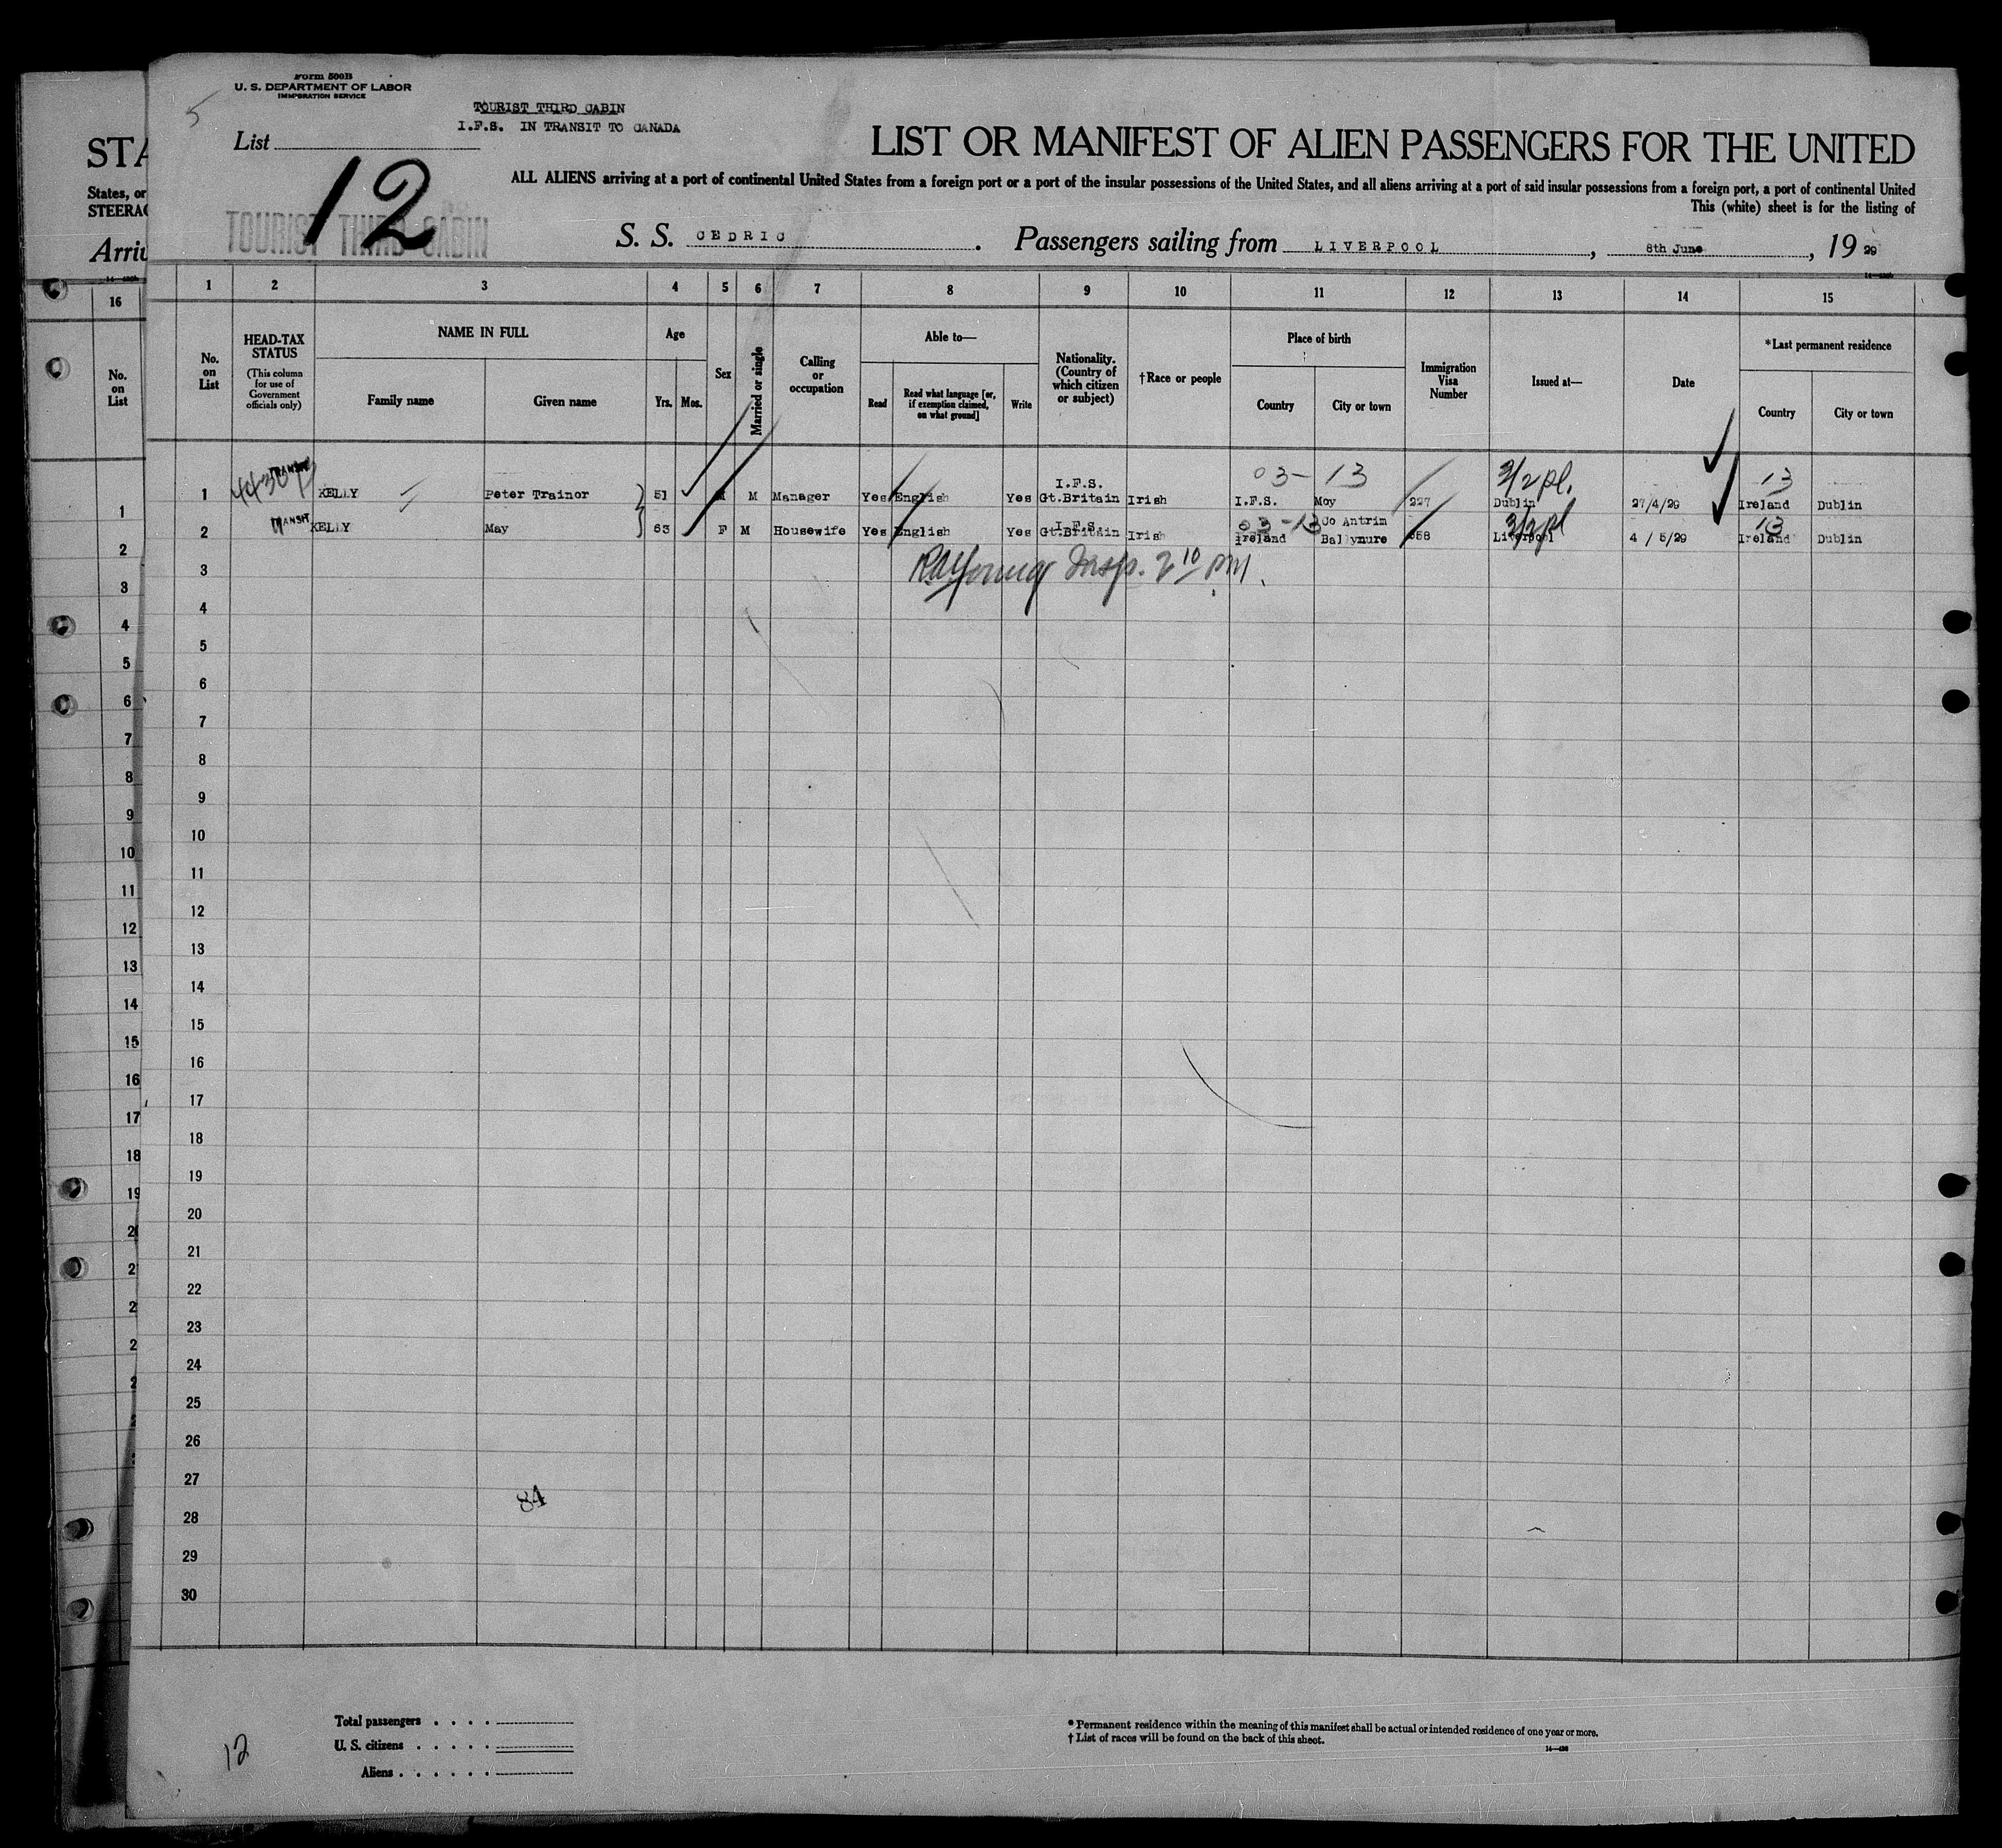 Form 500B
U. S. DEPARTMENT OF LABOR
IMMIGRATION SERVICE
5
TOURIST THIRD CABIN
I.F.S. IN TRANSIT TO CANADA
List
12
TOURIST THIRD CABIN
LIST OR MANIFEST OF ALIEN PASSENGERS FOR THE UNITED
ALL ALIENS arriving at a port of continental United States from a foreign port or a port of the insular possessions of the United States, and all aliens arriving at a port of said insular possessions from a foreign port, a port of continental United
This (white) sheet is for the listing of
S. S. CEDRIC. Passengers sailing from LIVERPOOL, 8th June, 19 29
STA
States, or
STEERAG
Arriv
16
No. on List
1 2 3 4 5 6 7 8 9 10 11 12 13 14 15
No. on List
HEAD-TAX STATUS
(This column for use of Government officials only)
NAME IN FULL
Family name
Given name
Age
Yrs.
Mos.
Sex
Married or single
Calling or occupation
Able to—
Read
Read what language [or, if exemption claimed, on what ground]
Write
Nationality. (Country of which citizen or subject)
†Race or people
Place of birth
Country
City or town
Immigration Visa Number
Issued at—
Date
*Last permanent residence
Country
City or town
TRANSIT
03- 13
3/2 pl.
13
I.F.S.
1 KELLY Peter Trainor 51 M M Manager Yes English Yes Gt.Britain Irish I.F.S. Moy 227 Dublin 27/4/29 Ireland Dublin
TRANSIT
I.F.S.
03-13 Co Antrim
3/2 pl
13
2 KELLY May 63 F M Housewife Yes English Yes Gt.Britain Irish Ireland Ballynure 358 Liverpool 4 / 5/29 Ireland Dublin
Insp. 2 10 PM.
3
4
5
6
7
8
9
10
11
12
13
14
15
16
17
18
19
20
21
22
23
24
25
26
27
84
28
29
30
1
2
3
4
5
6
7
8
9
10
11
12
13
14
15
16
17
18
19
Total passengers . . . .
U. S. citizens . . . . .
Aliens . . . . . .
12
* Permanent residence within the meaning of this manifest shall be actual or intended residence of one year or more.
† List of races will be found on the back of this sheet.